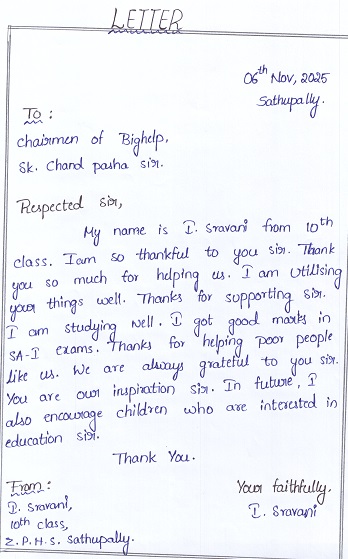 LETTER
06th Nov, 2025
Sathupally.
To :
chairmen of Bighelp,
Sk. Chand pasha sir.
Respected Sir,
My name is I. Sravani from 10th
class. I am so thankful to you sir. Thank
you so much for helping us. I am Utilising
your things well. Thanks for supporting sir.
I am studying well. I got good marks in
SA-I exams. Thanks for helping poor people
like us. We are always grateful to you sir.
You are our inspiration sir. In future, I
also encourage children who are interested in
education sir.
Thank You.
From :
Your faithfully.
I. Sravani,
I. Sravani
10th class,
Z.P.H.S. Sathupally.